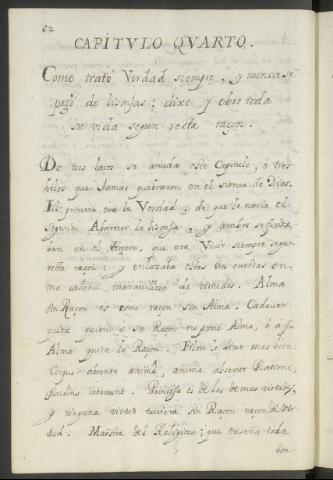 62
CAPITVLO QVARTO.
Como trató Verdad siempre, y nunca se
pegó de lisonjas; dixo y obro toda
su vida segun recta raçon.
De tres laços se anuda este Capitulo, ó tres
hilos que jamas quebraron en el siervo de Dios.
El primero era la Verdad; de que le nacia el
segundo Aborrecer la lisonja, y ambos se
ban en el tercero, que era Vivir siempre segun
recta raçon: y enlazaba estas tres cuerdas en
una cadena maravillosa de virtudes. Alma
sin Raçon es como raçon sin Alma. Cadaver
quita quien á su Raçon no pone Alma, ó á su
Alma quita la Raçon. Filon lo dixo mas bien:
Corpus absente animâ, anima absente Ratione,
intereunt. Princesa es de las demas virtudes,
y ninguna virtud tuviera sin Raçon raçon de vir
tud. Maestra del Religioso; que enseña toda
bon-